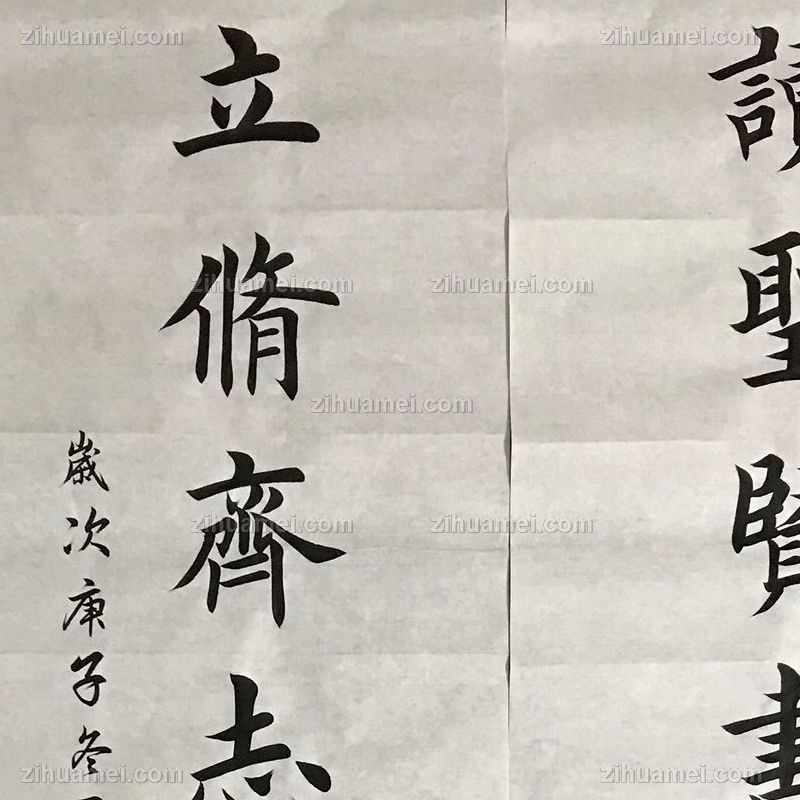 讀聖賢書
立脩齊志
歲次庚子冬
zihuamei.com zihuamei.com zihuamei.com
zihuamei.com zihuamei.com
zihuamei.com zihuamei.com
zihuamei.com zihuamei.com
zihuamei.com zihuamei.com zihuamei.com